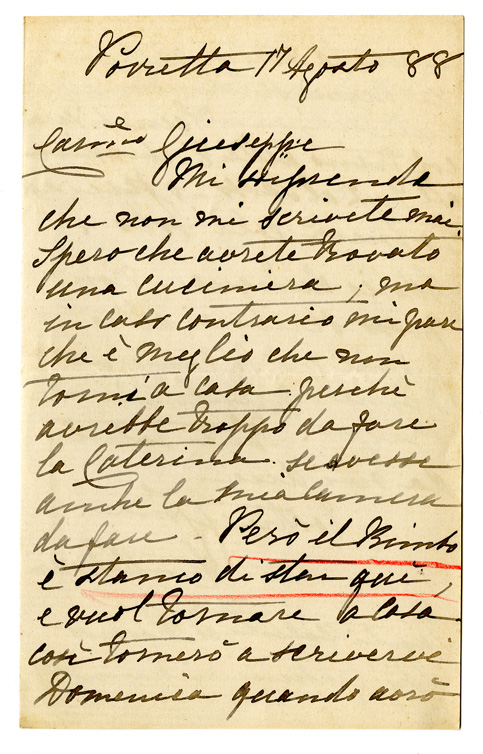 Porretta 17 Agosto 88
Carmo Giuseppe
Mi sorprende
che non mi scrivete mai.
Spero che avrete trovato
una cuciniera, ma
in caso contrario mi pare
che è meglio che non
torni a casa perchè
avrebbe troppo da fare
la Caterina se avesse
anche la mia camera
da fare - Però il Bimbo
è stanco di star quì,
e vuol tornare a casa.
così tornerò a scrivervi
Domenica quando avrò